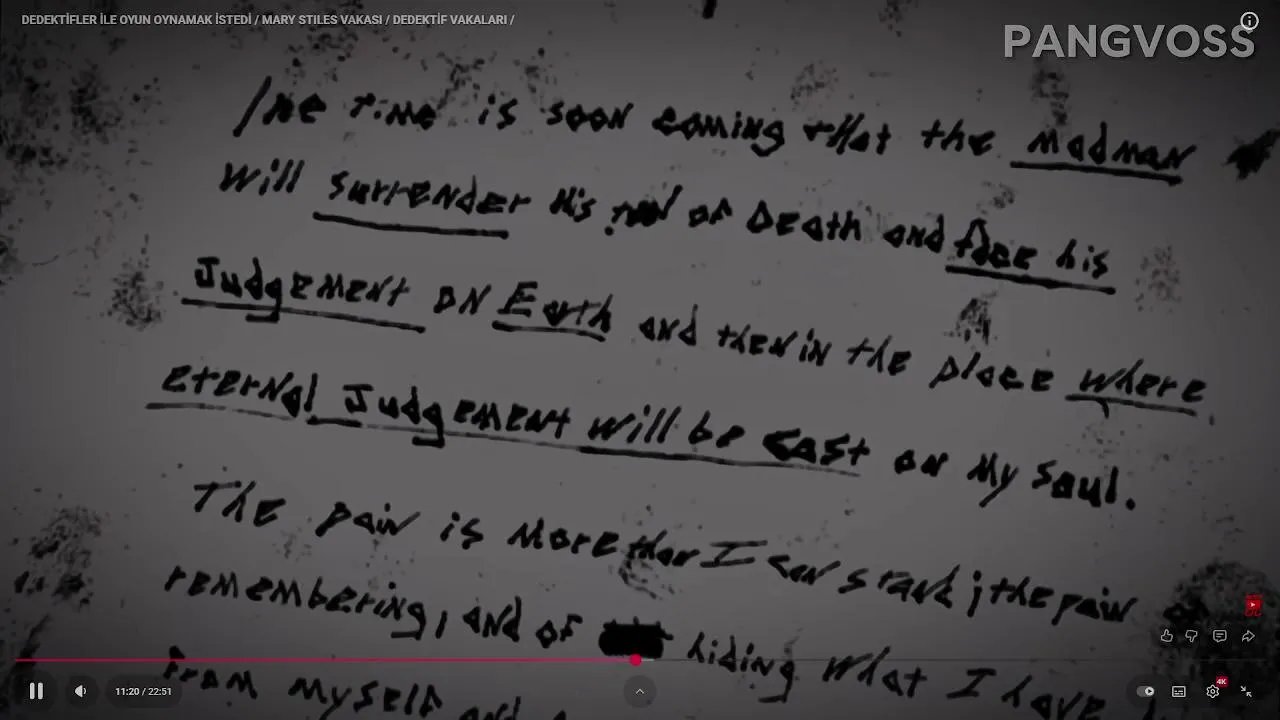 DEDEKTİFLER İLE OYUN OYNAMAK İSTEDİ / MARY STILES VAKASI / DEDEKTİF VAKALARI /
PANGVOSS
The time is soon coming that the madman
will surrender His of Death and face his
Judgement on Earth and then in the place where
eternal Judgement will be cast on My soul.
The pain is More than I can stand; the pain
remembering, and of hiding what I have
from myself and
11:20 / 22:51
4K